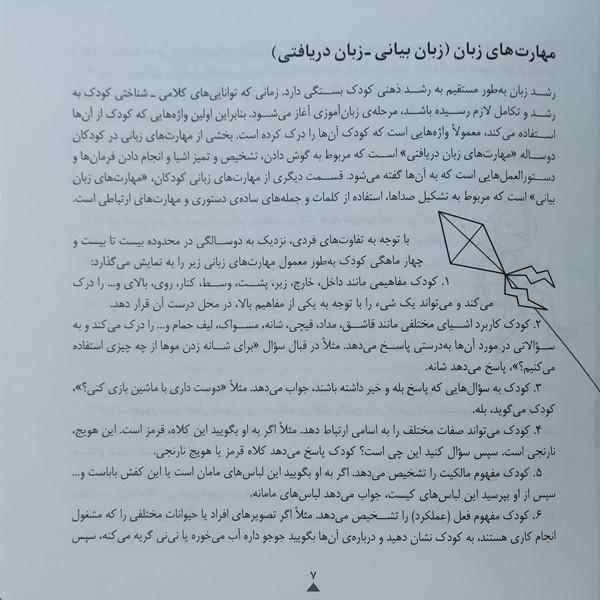 مهارت‌های زبان (زبان بیانی ـ زبان دریافتی)
رشد زبان به‌طور مستقیم به رشد ذهنی کودک بستگی دارد. زمانی که توانایی‌های کلامی ـ شناختی کودک به
رشد و تکامل لازم رسیده باشند، مرحله‌ی زبان‌آموزی آغاز می‌شود. بنابراین اولین واژه‌هایی که کودک از آن‌ها
استفاده می‌کند، معمولاً واژه‌هایی است که کودک آن‌ها را درک کرده است. بخشی از مهارت‌های زبانی در کودکان
دوساله «مهارت‌های زبان دریافتی» است که مربوط به گوش دادن، تشخیص و تمیز اشیا و انجام دادن فرمان‌ها و
دستورالعمل‌هایی است که به آن‌ها گفته می‌شود. قسمت دیگری از مهارت‌های زبانی کودکان، «مهارت‌های زبان
بیانی» است که مربوط به تشکیل صداها، استفاده از کلمات و جمله‌های ساده‌ی دستوری و مهارت‌های ارتباطی است.
با توجه به تفاوت‌های فردی، نزدیک به دوسالگی در محدوده بیست تا بیست و
چهار ماهگی کودک به‌طور معمول مهارت‌های زبانی زیر را به نمایش می‌گذارد:
۱. کودک مفاهیمی مانند داخل، خارج، زیر، پشت، وسط، کنار، روی، بالای و... را درک
می‌کند و می‌تواند یک شیء را با توجه به یکی از مفاهیم بالا، در محل درست آن قرار دهد.
۲. کودک کاربرد اشیای مختلفی مانند قاشق، مداد، قیچی، شانه، مسواک، لیف حمام و... را درک می‌کند و به
سؤالاتی در مورد آن‌ها به‌درستی پاسخ می‌دهد. مثلاً در قبال سؤال «برای شانه زدن موها از چه چیزی استفاده
می‌کنیم؟»، پاسخ می‌دهد شانه.
۳. کودک به سؤال‌هایی که پاسخ بله و خیر داشته باشند، جواب می‌دهد. مثلاً «دوست داری با ماشین بازی کنی؟»،
کودک می‌گوید، بله.
۴. کودک می‌تواند صفات مختلف را به اسامی ارتباط دهد. مثلاً اگر به او بگویید این کلاه، قرمز است. این هویج،
نارنجی است. سپس سؤال کنید این چی است؟ کودک پاسخ می‌دهد کلاه قرمز یا هویج نارنجی.
۵. کودک مفهوم مالکیت را تشخیص می‌دهد. اگر به او بگویید این لباس‌های مامان است یا این کفش باباست و...
سپس از او بپرسید این لباس‌های کیست، جواب می‌دهد لباس‌های مامانه.
۶. کودک مفهوم فعل (عملکرد) را تشخیص می‌دهد. مثلاً اگر تصویرهای افراد یا حیوانات مختلفی را که مشغول
انجام کاری هستند، به کودک نشان دهید و درباره‌ی آن‌ها بگویید جوجو داره آب می‌خوره یا نی‌نی گریه می‌کنه، سپس
۷